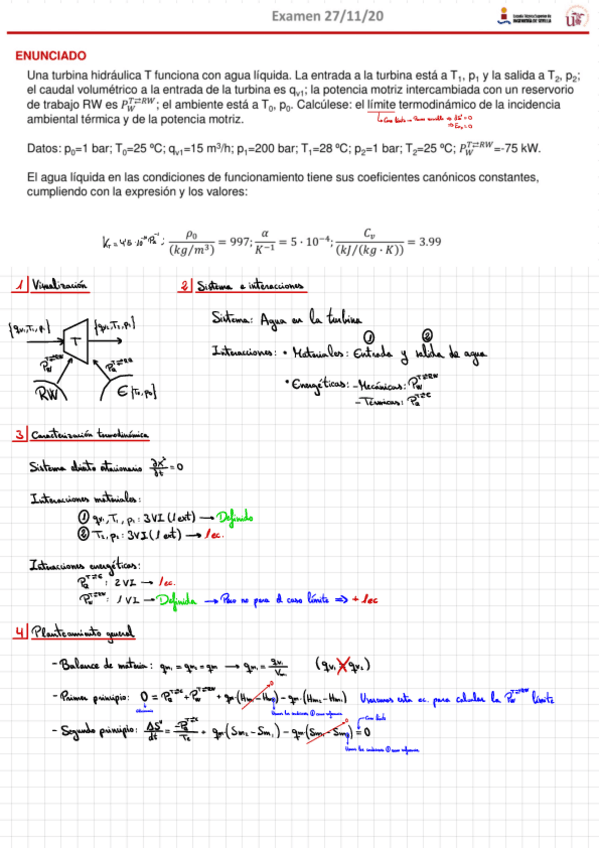 Examen 27/11/20
Escuela Técnica Superior de
INGENIERÍA DE SEVILLA
ENUNCIADO
Una turbina hidráulica T funciona con agua líquida. La entrada a la turbina está a T₁, p₁ y la salida a T₂, p₂;
el caudal volumétrico a la entrada de la turbina es qᵥ₁; la potencia motriz intercambiada con un reservorio
de trabajo RW es P_W^{T⇄RW}; el ambiente está a T₀, p₀. Calcúlese: el límite termodinámico de la incidencia
ambiental térmica y de la potencia motriz.
Datos: p₀=1 bar; T₀=25 ºC; qᵥ₁=15 m³/h; p₁=200 bar; T₁=28 ºC; p₂=1 bar; T₂=25 ºC; P_W^{T⇄RW}=-75 kW.
El agua líquida en las condiciones de funcionamiento tiene sus coeficientes canónicos constantes,
cumpliendo con la expresión y los valores:
ρ₀/(kg/m³) = 997; α/K⁻¹ = 5 · 10⁻⁴; Cᵥ/(kJ/(kg · K)) = 3.99
1 Visualización
2 Sistema e interacciones
Sistema: Agua en la turbina
① ②
Interacciones: • Materiales: Entrada y salida de agua
T
• Energéticas: - Mecánicas: P_W^{T⇄RW}
- Térmicas: P_Q^{T⇄E}
RW
E {T₀, p₀}
3 Caracterización termodinámica
Sistema abierto estacionario
Interacciones materiales:
① qᵥ₁, T₁, p₁: 3VI (1 ext) → Definido
② T₂, p₂: 3VI (1 ext) → 1 ec.
Interacciones energéticas:
P_Q^{T⇄E}: 2 VI → 1 ec.
P_W^{T⇄RW}: 1 VI → Definida → Pero no para el caso límite ⇒ + 1 ec
4 Planteamiento general
- Balance de materia:
- Primer principio:
Usaremos esta ec. para calcular la P_W^{T⇄RW} límite
- Segundo principio:
Caso límite